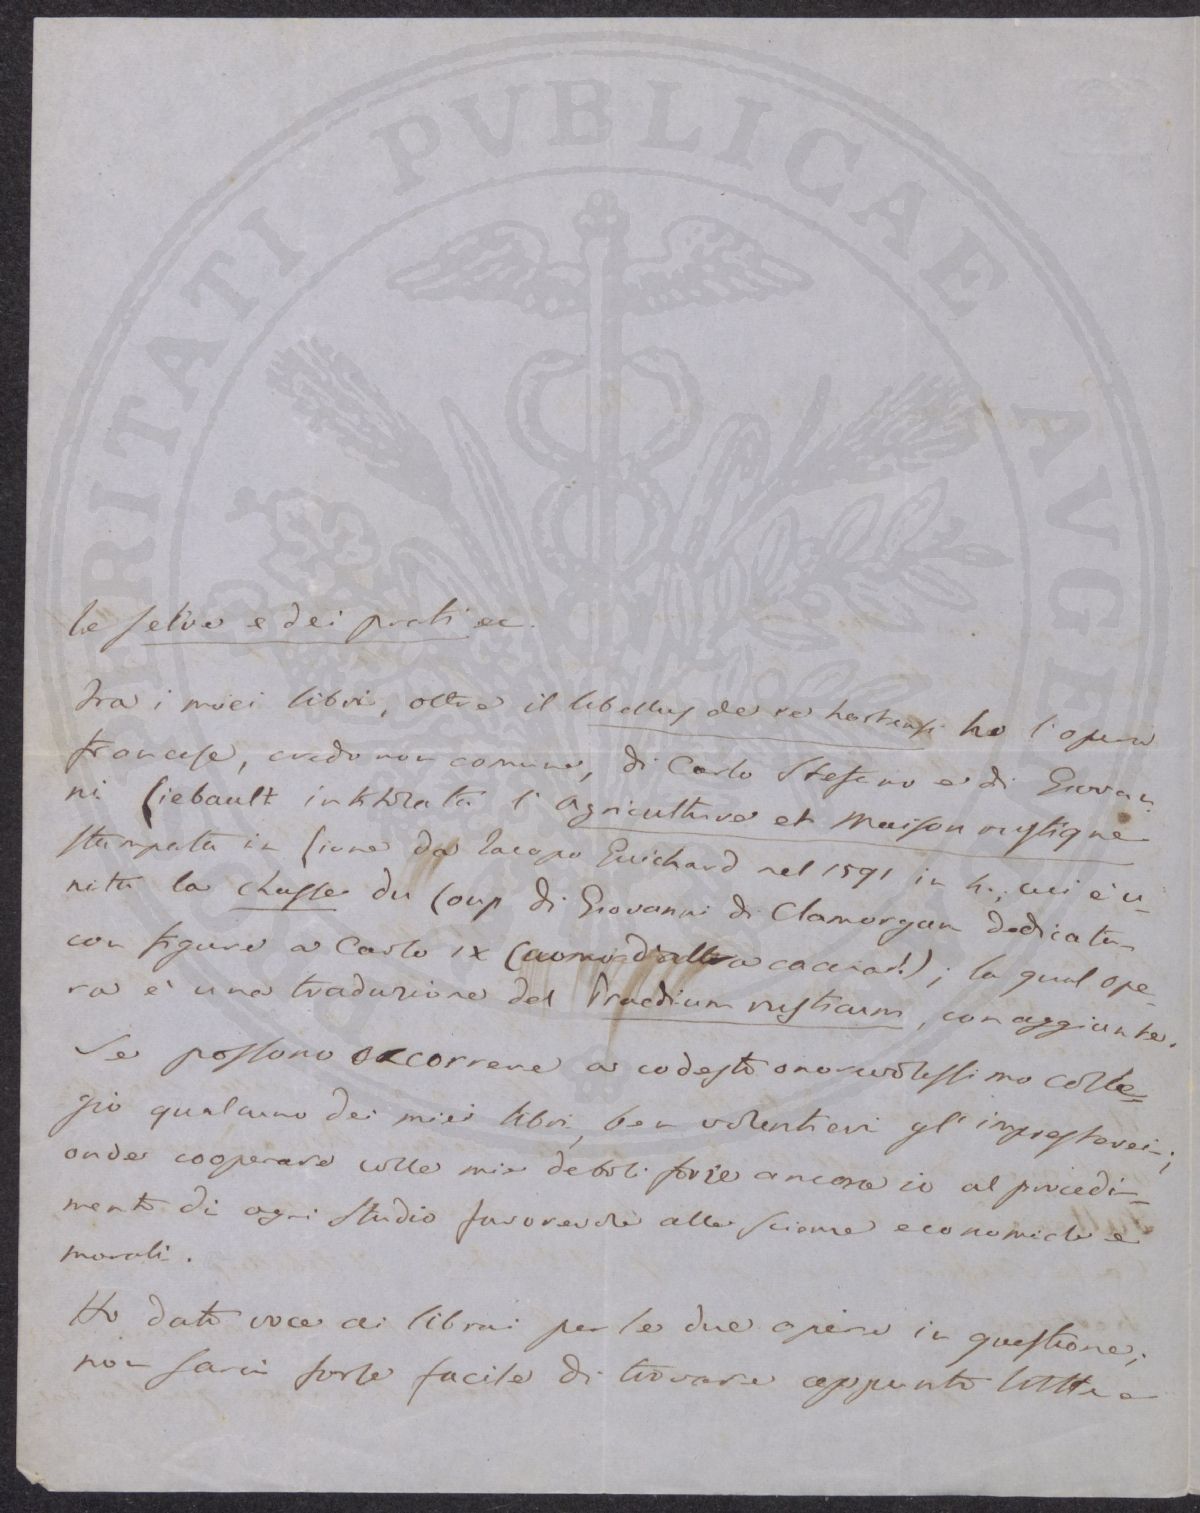 PROSPERITATI PVBLICAE AVGEN
le selve e dei prati ec.
Tra i miei libri, oltre il libellus de re hortensi ho l'opera
francese, credo non comune, di Carlo Stefano e di Giovan-
ni Liebault intitolata l'Agriculture et Maison rustique
stampata in Lione da Iacopo Guichard nel 1591 in 4., cui è u-
nita la chasse du Loup di Giovanni di Clamorgan dedicata
con figure a Carlo IX (uomo d'altra caccia!); la qual ope-
ra è una traduzione del Praedium rusticum, con aggiunte.
Se possono occorrere a codesto onorevolissimo colle-
gio qualcuno dei miei libri, ben volentieri gl'impresterei;
onde cooperare colle mie deboli forze ancora io al procedi-
mento di ogni studio favorevole alle scienze economiche e
morali.
Ho dato voce ai librai per le due opere in questione;
non sarà forse facile di trovare appunto tutte e